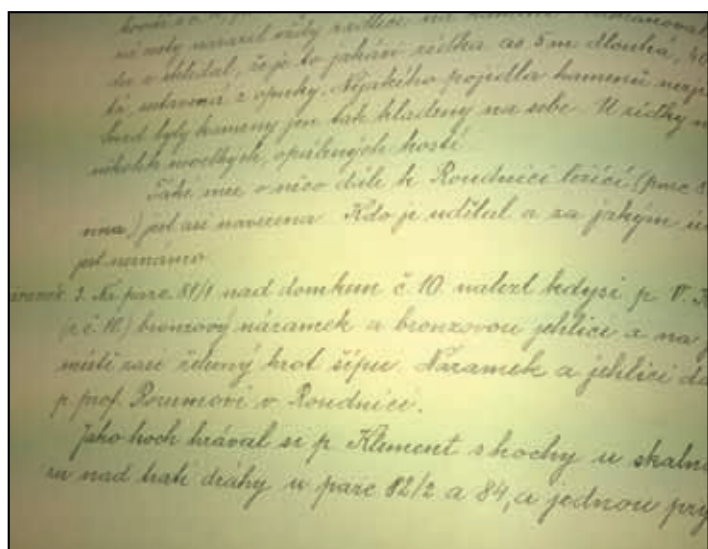 ně narazil vždy radlicí na kameny
du a shledal, že je to jakási zídka as 5 m dlouhá, 40
tá, sestavená z opuky. Nějakého pojidla kamenů nezj
byly kameny jen tak kladeny na sebe. U zídky n
několik opálených kostí
Také mez o něco dále k Roudnici ležící (parc 8
) jest asi navezena. Kdo je udělal a za jakým ú
jest neznámo
3. Na parc 81/1 nad domkem č. 10. nalezl kdysi p. V. K
(z č. 10.) bronzový náramek a bronzovou jehlici a na j
místě zase železný hrot šípu. Náramek a jehlici da
p. prof. v Roudnici.
Jako hoch hrával si p. Klement s hochy u skaln
nad tratí dráhy u parc 82/2 a 84, a jednou pry